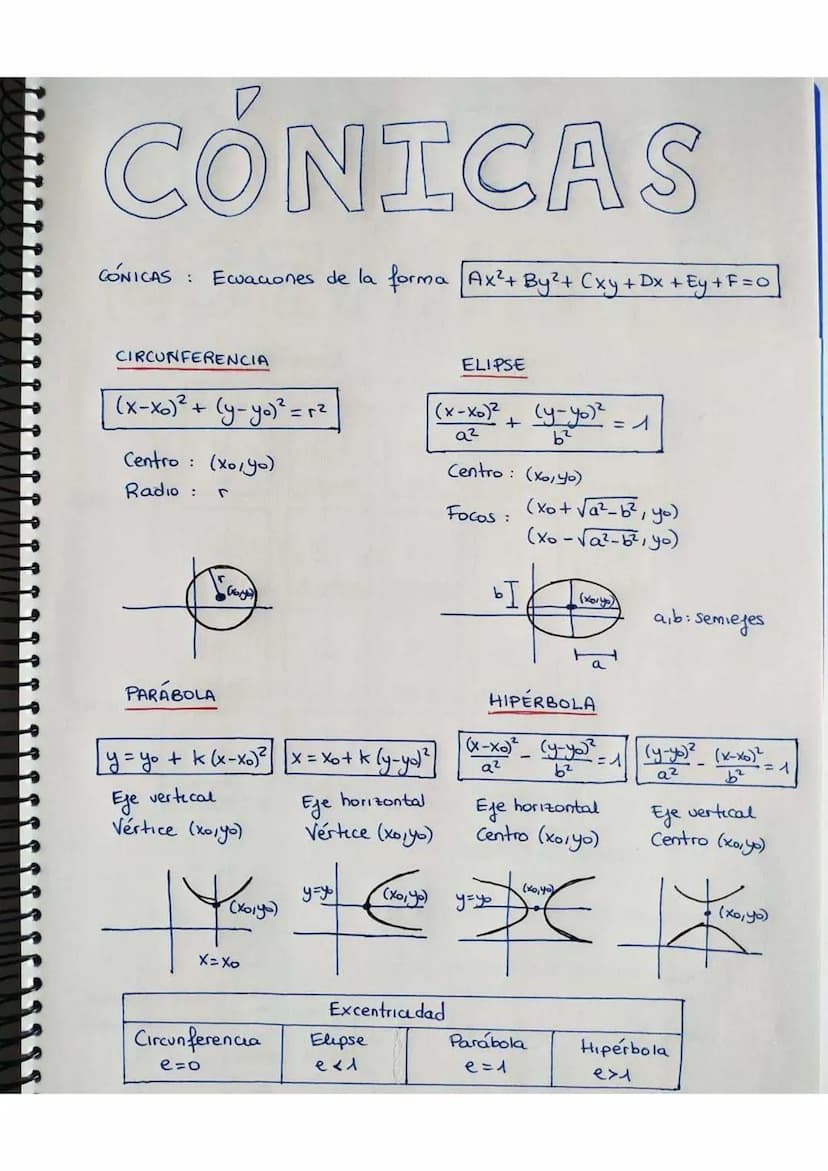 CÓNICAS
CÓNICAS : Ecuaciones de la forma Ax²+ By²+ Cxy + Dx + Ey + F = 0
CIRCUNFERENCIA
(x-x₀)² + (y-y₀)² = r²
Centro : (x₀,y₀)
Radio : r
r
(x₀,y₀)
ELIPSE
(x-x₀)²/a² + (y-y₀)²/b² = 1
Centro : (x₀,y₀)
Focos : (x₀+√a²-b², y₀)
(x₀-√a²-b², y₀)
b
(x₀,y₀)
a
a,b: semiejes
PARÁBOLA
y = y₀ + k (x-x₀)²
Eje vertical
Vértice (x₀,y₀)
(x₀,y₀)
x=x₀
x = x₀ + k (y-y₀)²
Eje horizontal
Vértice (x₀,y₀)
y=y₀
(x₀,y₀)
HIPÉRBOLA
(x-x₀)²/a² - (y-y₀)²/b² = 1
Eje horizontal
Centro (x₀,y₀)
y=y₀
(x₀,y₀)
(y-y₀)²/a² - (x-x₀)²/b² = 1
Eje vertical
Centro (x₀,y₀)
(x₀,y₀)
Excentricidad
Circunferencia
e=0
Elipse
e<1
Parábola
e=1
Hipérbola
e>1